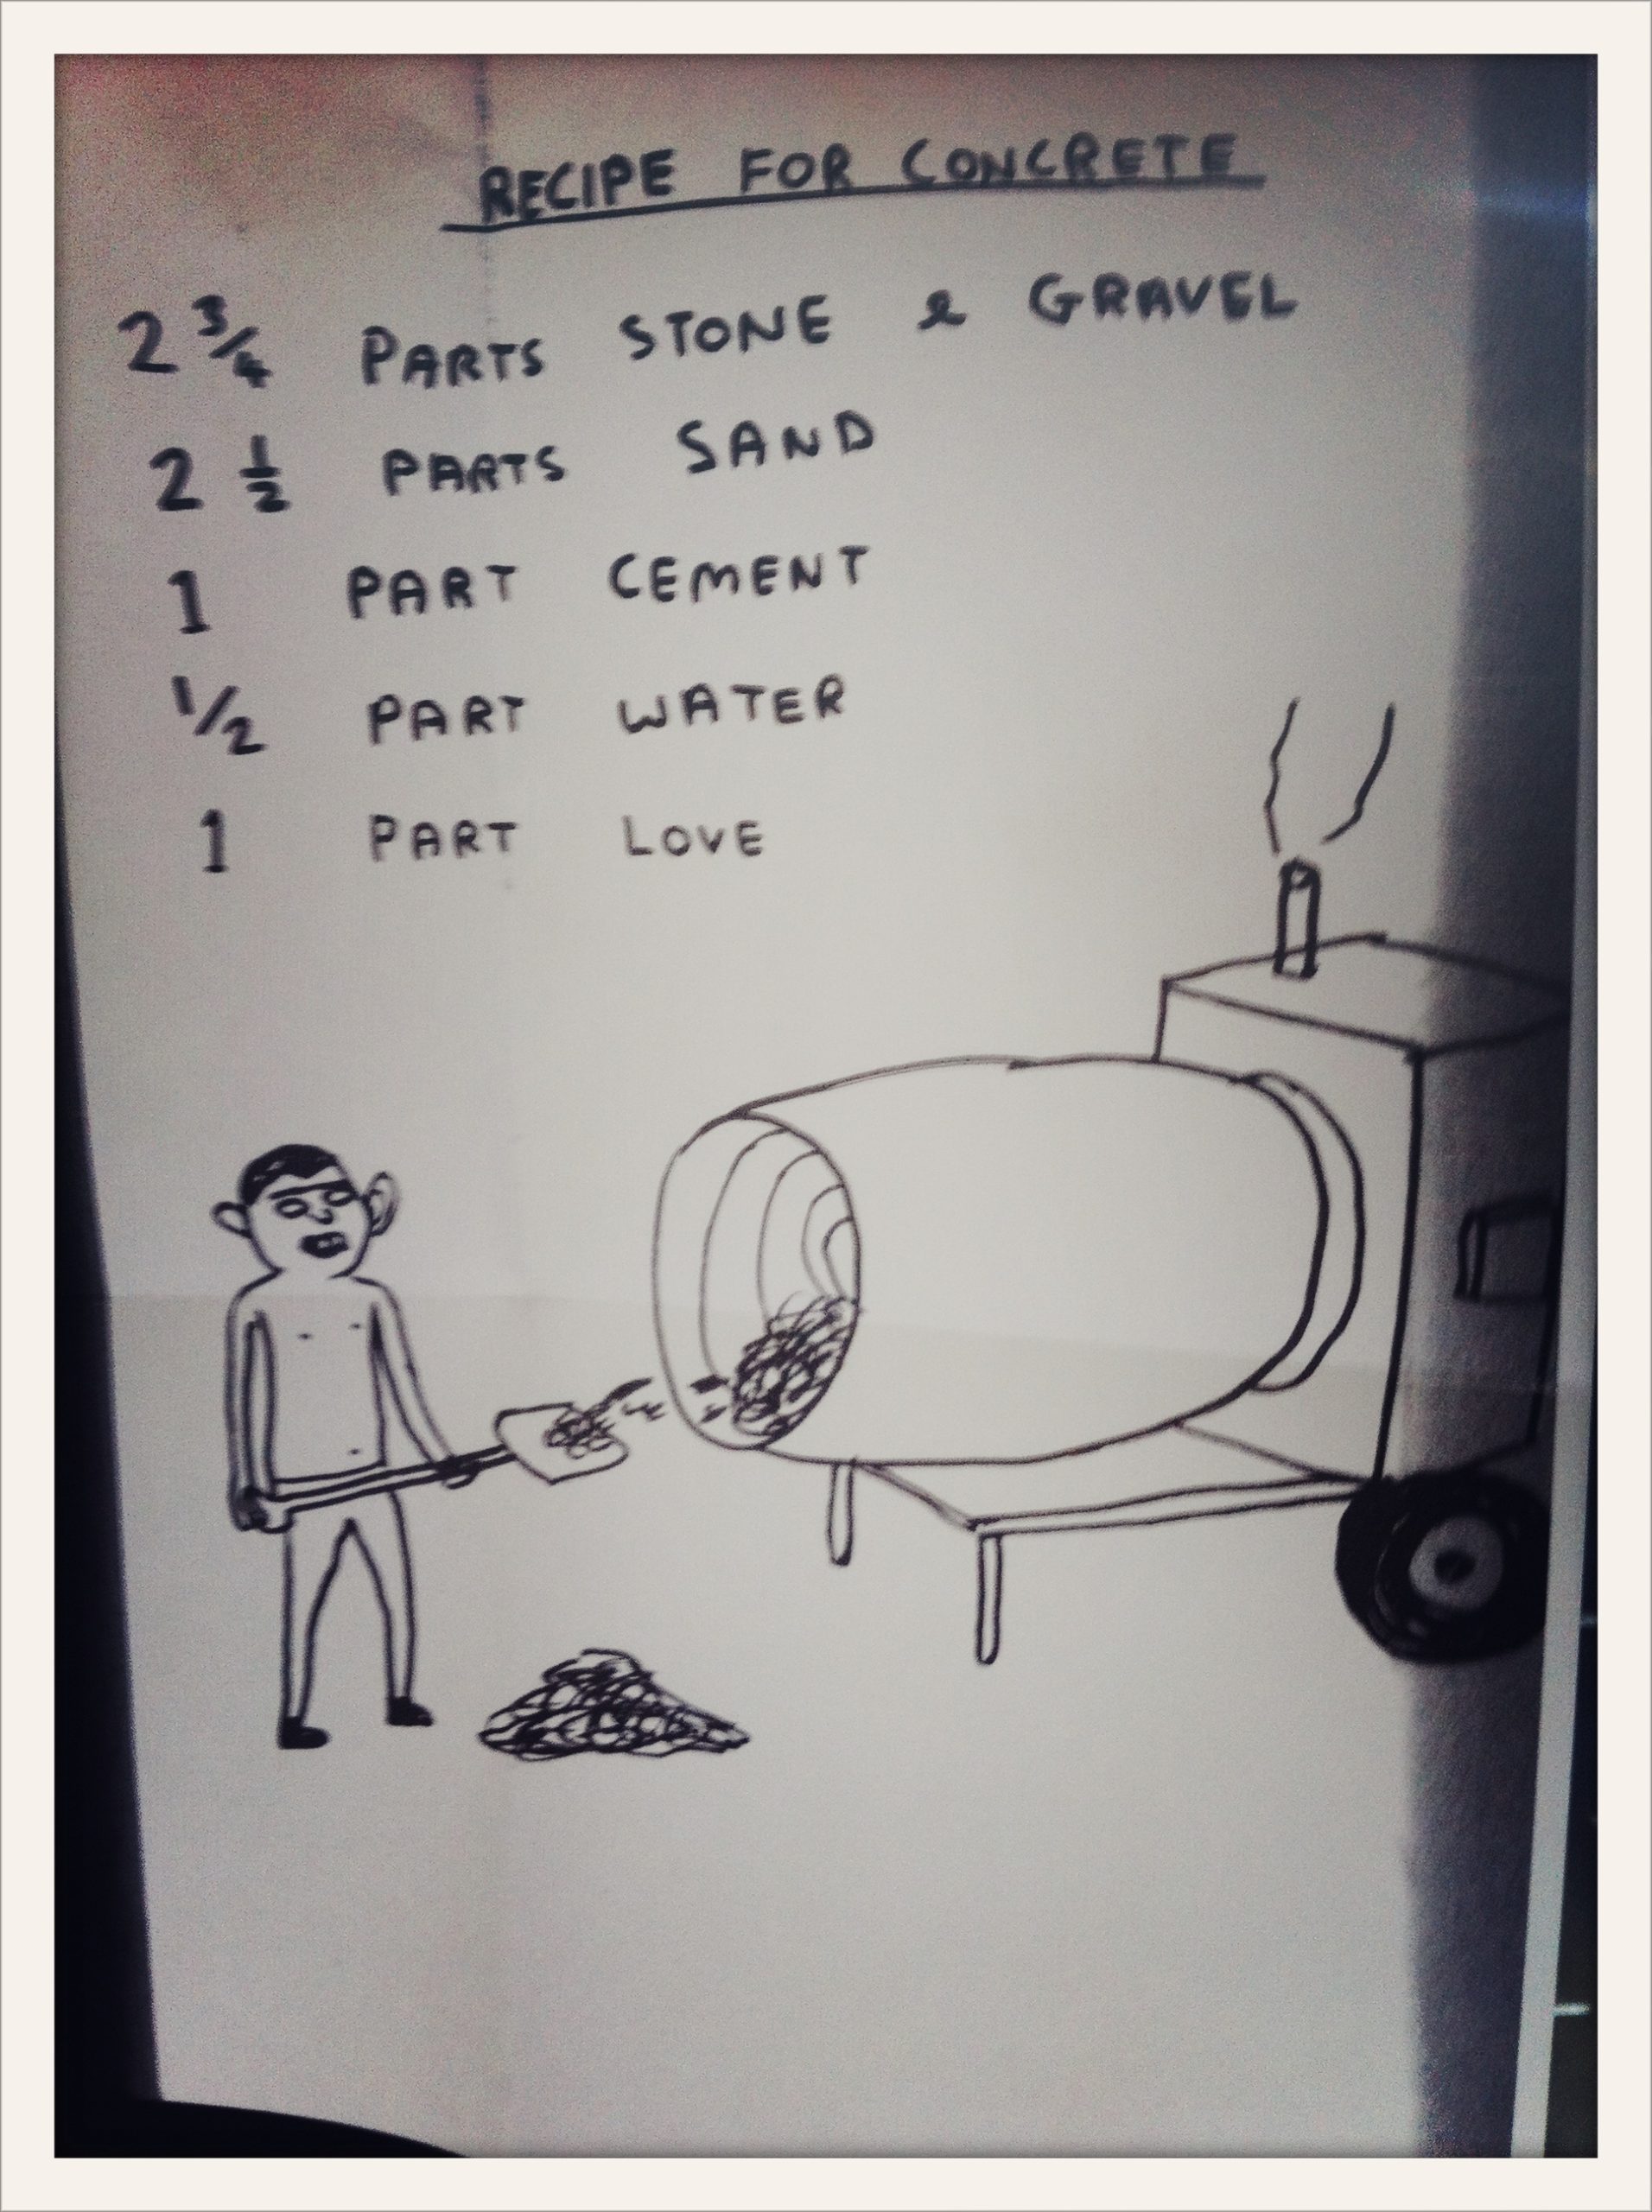 RECIPE FOR CONCRETE
2 3/4 PARTS STONE & GRAVEL
2 1/2 PARTS SAND
1 PART CEMENT
1/2 PART WATER
1 PART LOVE